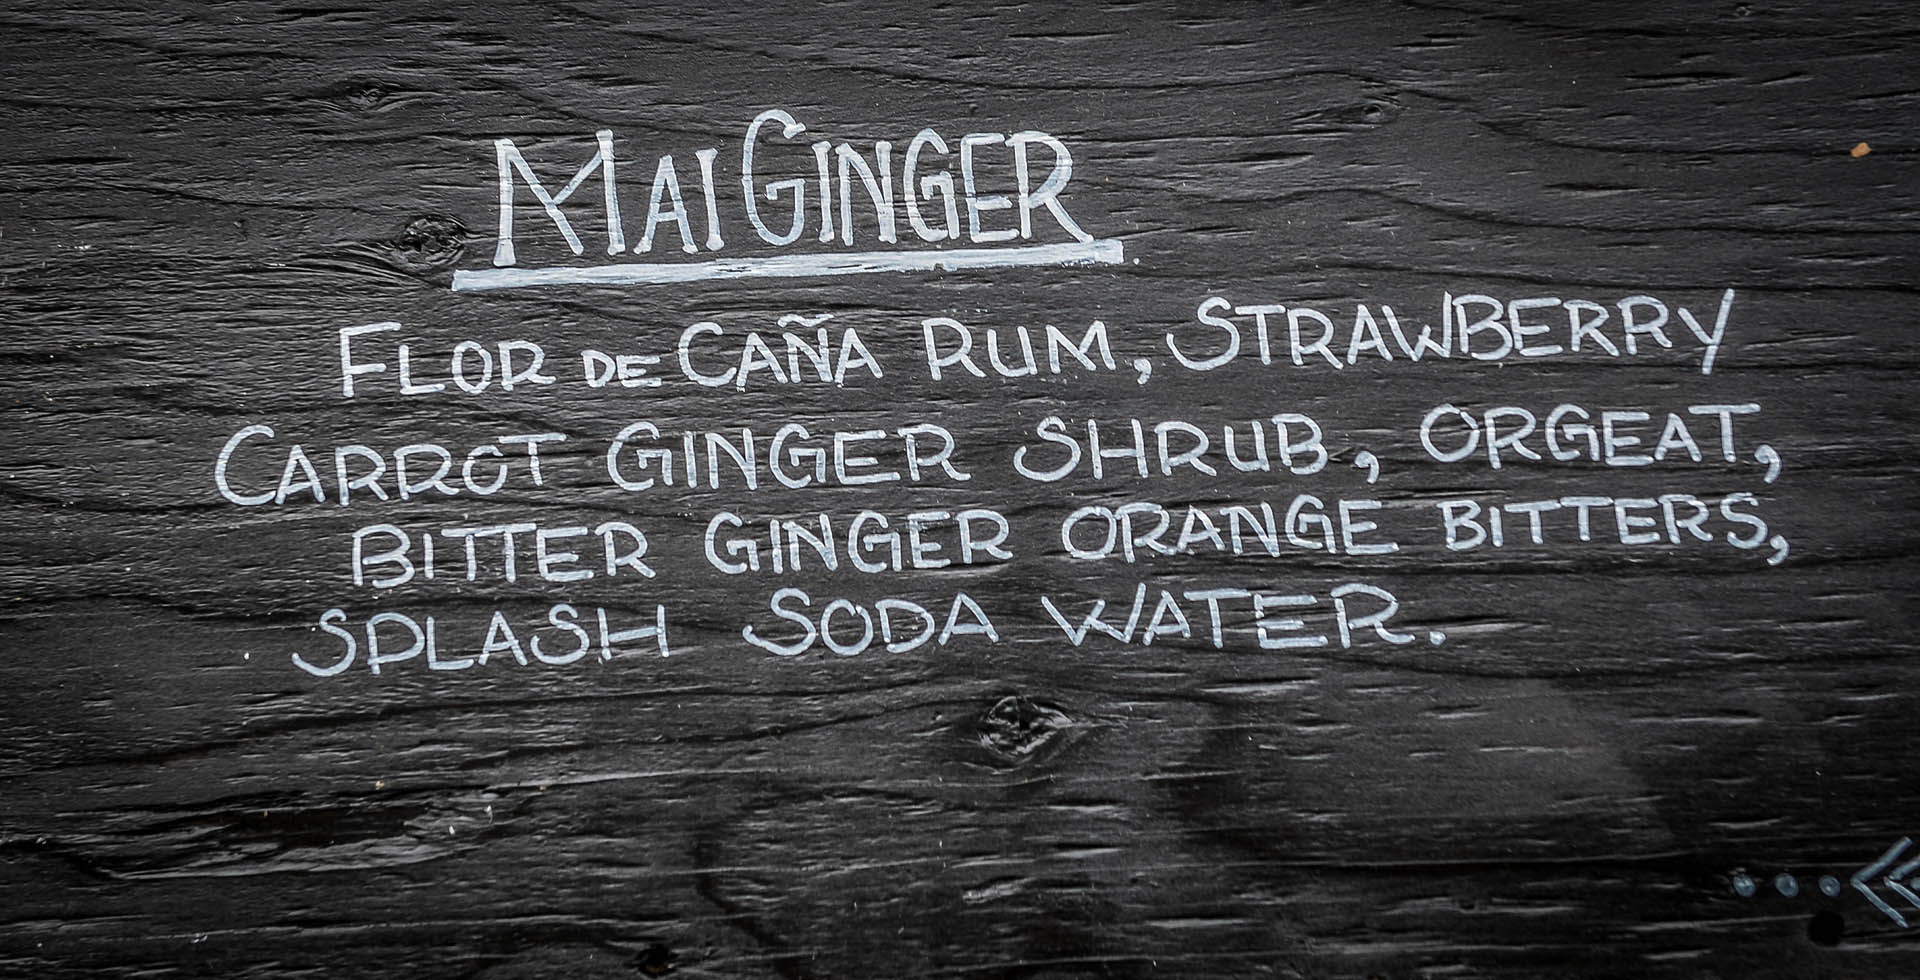 MAI GINGER
FLOR DE CAÑA RUM, STRAWBERRY
CARROT GINGER SHRUB, ORGEAT,
BITTER GINGER ORANGE BITTERS,
SPLASH SODA WATER.